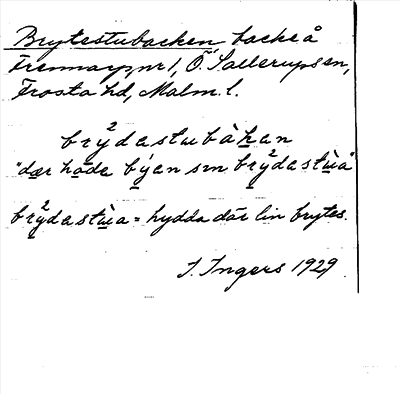 Brytestubacken, backe å
Fremmarp nr 1, Ö. Sallerups sn,
Frosta hd, Malm. l.
brỳ²dastubàkan
"dær hade býen sin brỳ²dastùa"
brỳ²dastùa = hydda där lin brytes.
I. Ingers 1929